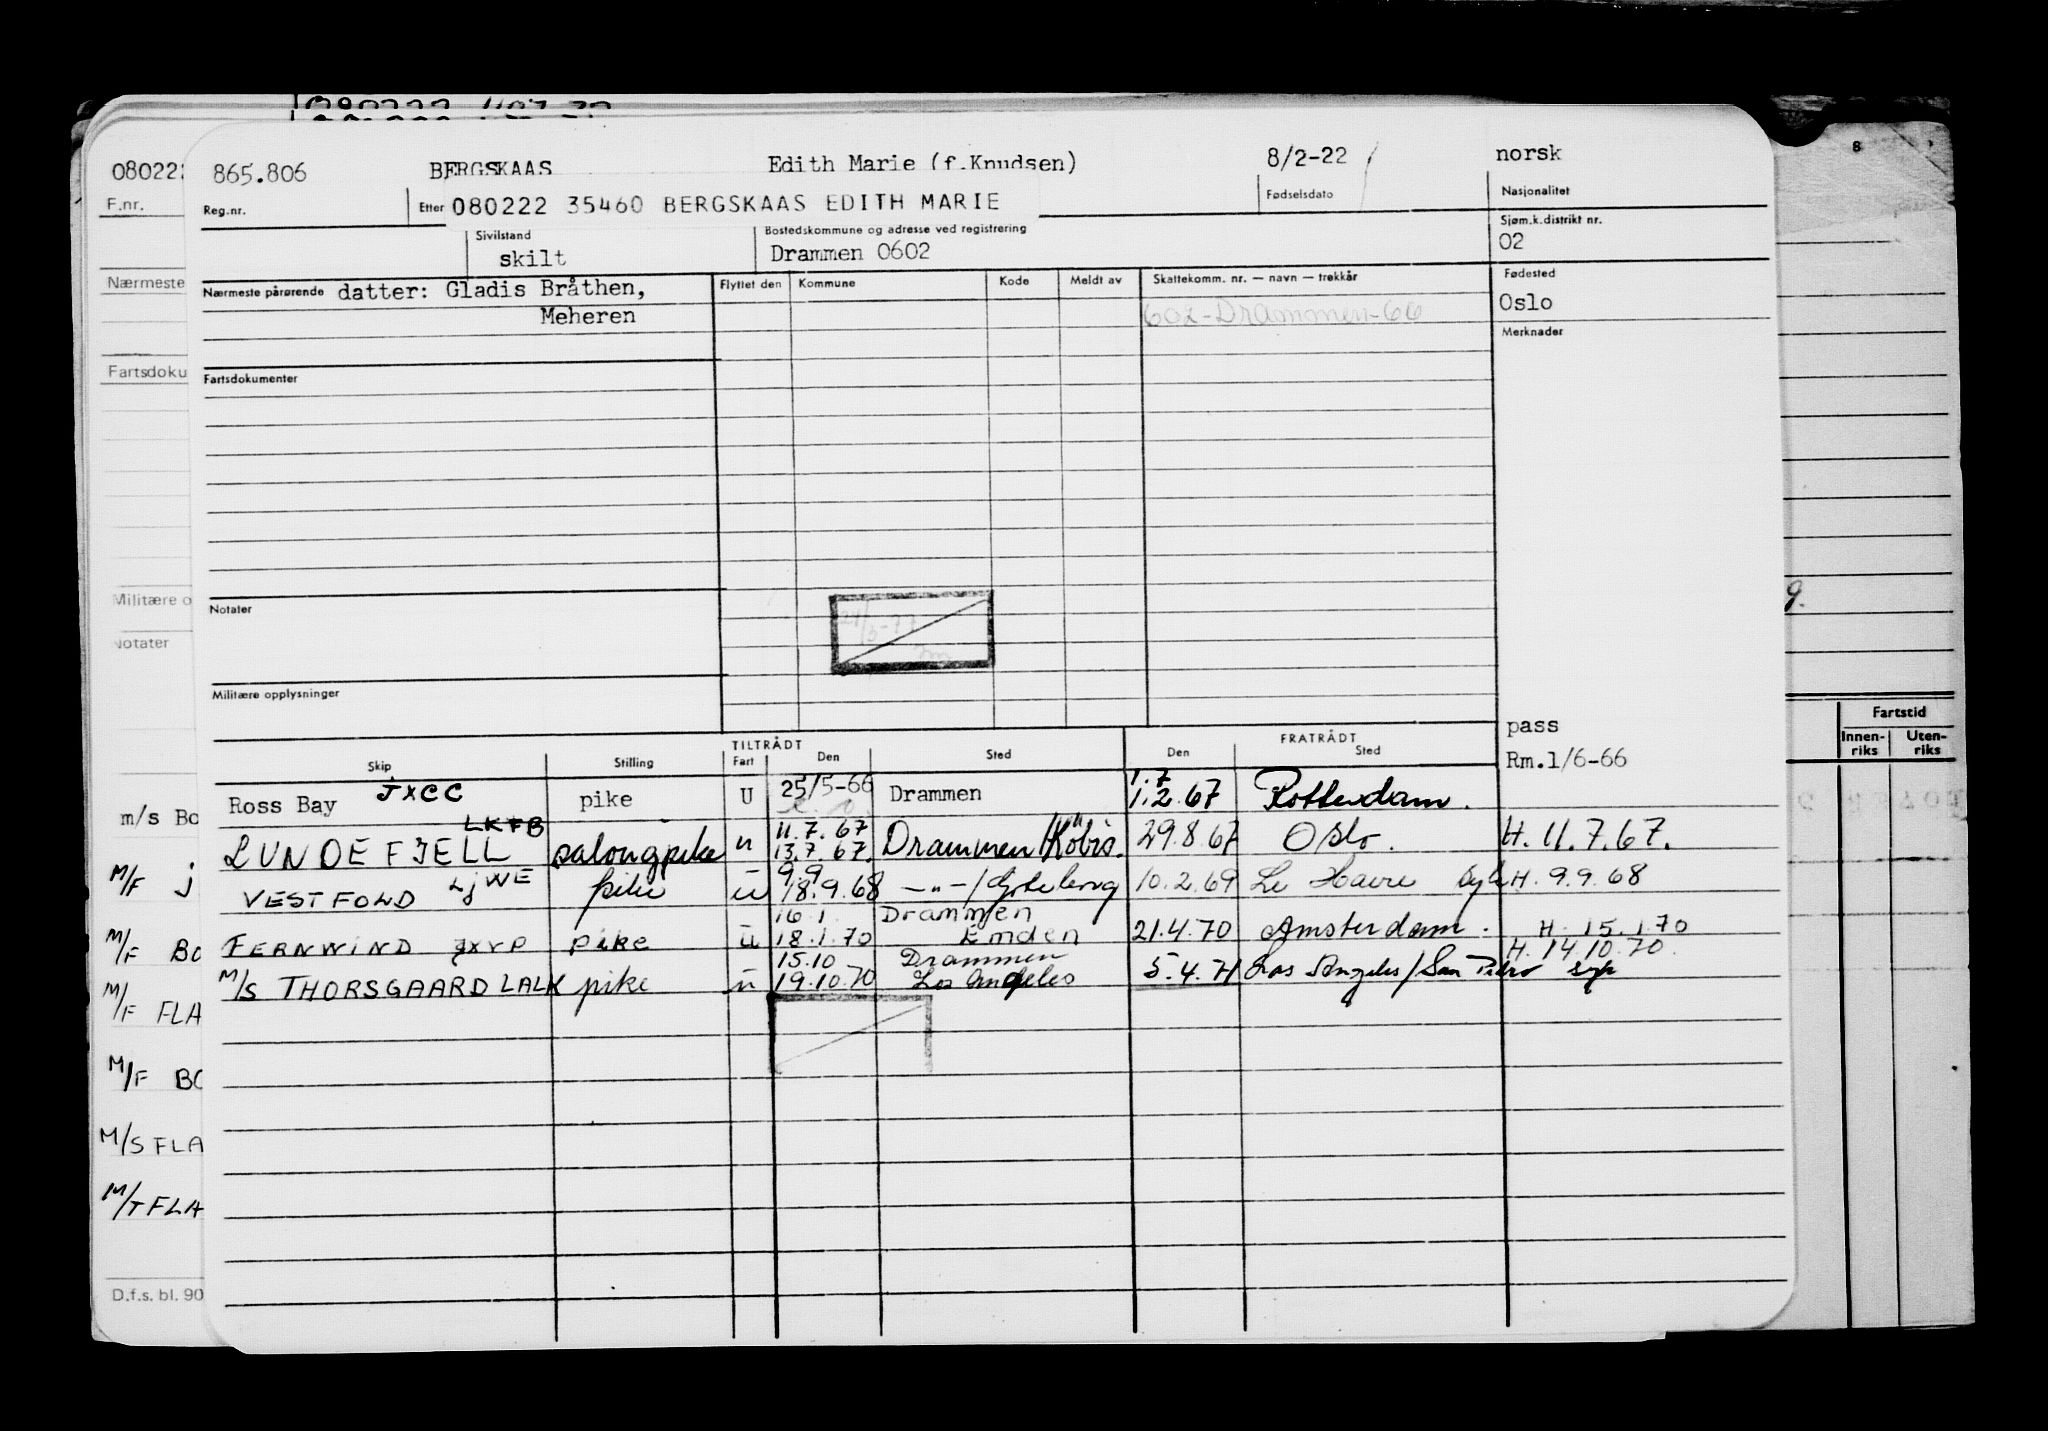 080222 865.806 BERGSKAAS Edith Marie (f.Knudsen) 8/2-22 norsk 8
F.nr. Reg.nr. Etter 080222 35460 BERGSKAAS EDITH MARIE Fødselsdato Nasjonalitet
Sivilstand Bostedskommune og adresse ved registrering Sjøm.k.distrikt nr.
skilt Drammen 0602 02
Nærmeste Nærmeste pårørende datter: Gladis Bråthen, Flyttet den Kommune Kode Meldt av Skattekomm. nr. — navn — trekkår Fødested
Meheren 602-Drammen-66 Oslo
Merknader
Fartsdoku Fartsdokumenter
Militære o Notater
Notater
Militære opplysninger
pass
Rm.1/6-66
Fartstid
Innen-riks Uten-riks
TILTRÅDT FRATRÅDT
Skip Stilling Fart Den Sted Den Sted
m/s Bo Ross Bay JXCC pike U 25/5-66 Drammen 1.7 1.2.67 Rotterdam.
LUNDEFJELL LKFB salongpike u 11.7.67 13.7.67. Drammen/Köbis. 29.8.67 Oslo. H. 11.7.67.
M/F J VESTFOLD LJWE pike u 9.9 18.9.68 —"—/Göteborg 10.2.69 Le Havre H. 9.9.68
M/F BO FERNWIND JXVP pike u 16.1. 18.1.70 Drammen Emden 21.4.70 Amsterdam. H. 15.1.70
M/F FLA M/S THORSGAARD LALK pike u 15.10 19.10.70 Drammen Los Angeles 5.4.71 Los Angeles/San Pedro syk H. 14.10.70.
M/F BO
M/S FLA
M/T FLA
D.f.s. bl. 90